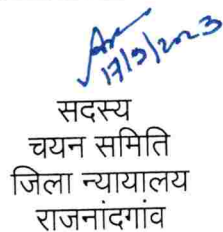 17/3/2023
सदस्य
चयन समिति
जिला न्यायालय
राजनांदगांव